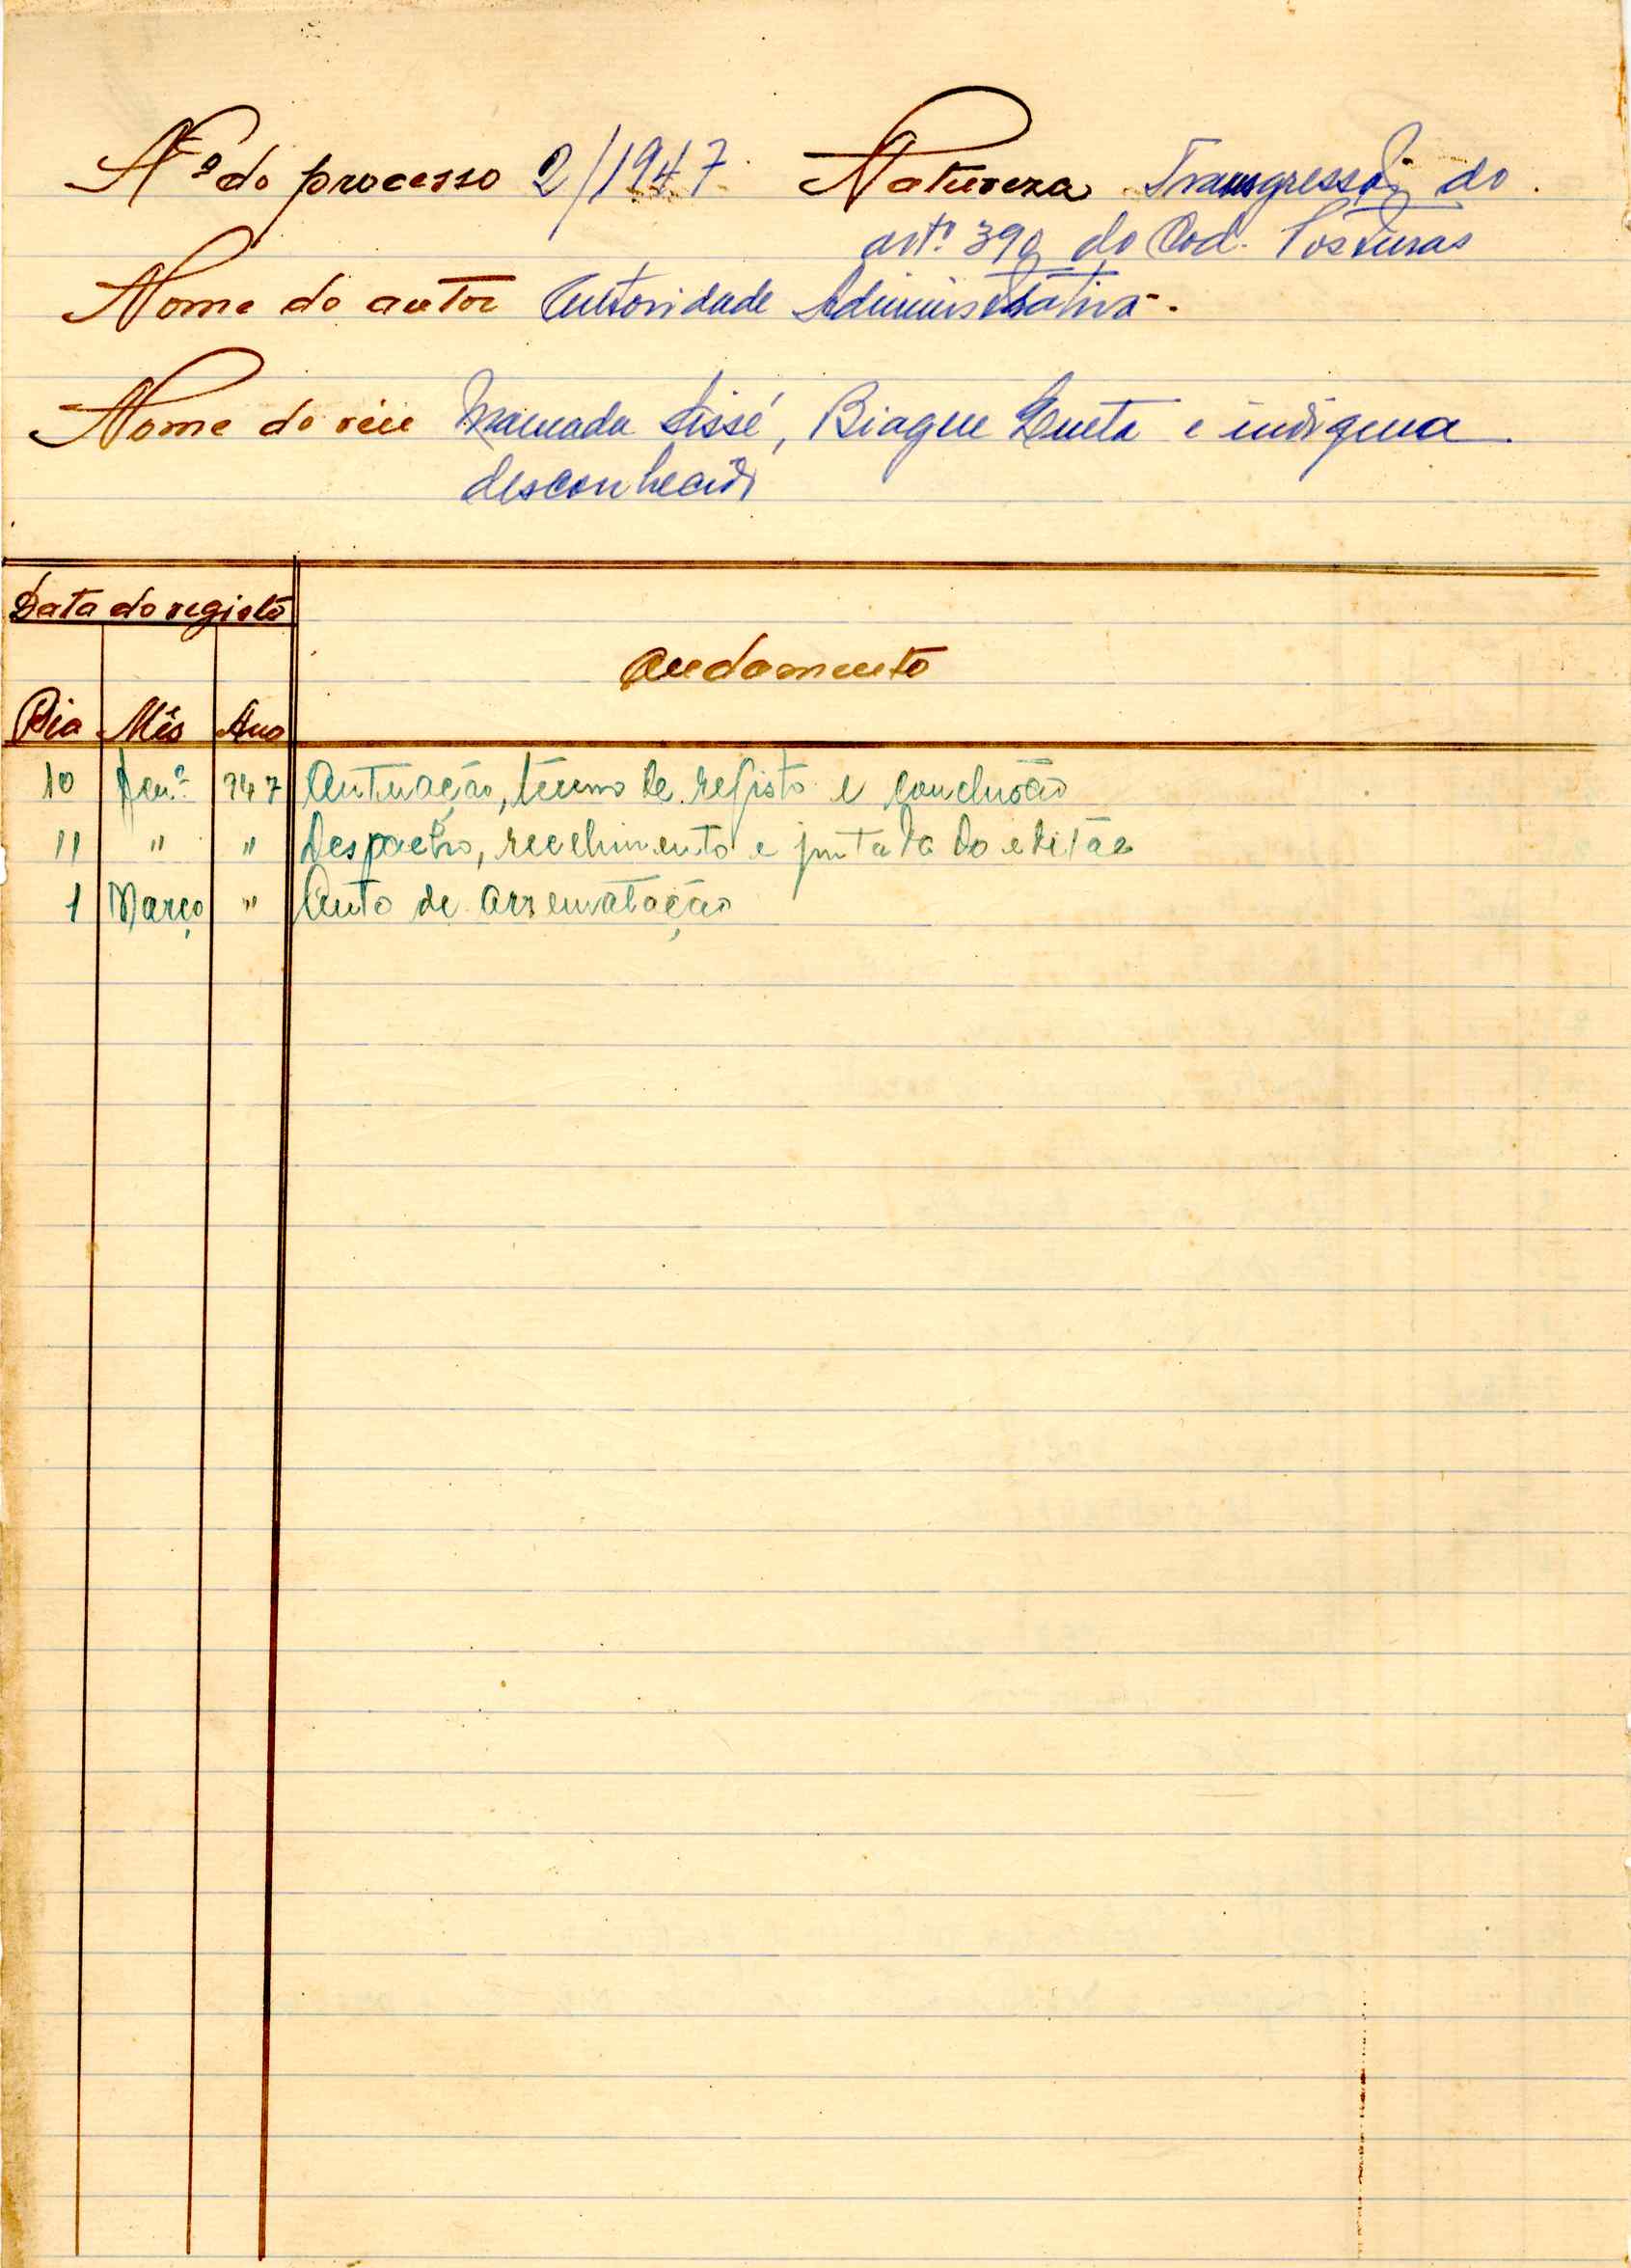 Nº do processo 2/1947 Natureza Transgressão do
artº 39 do Cod. Posturas
Nome do autor Autoridade Administrativa.
Nome do réu Mamadu Sissé, Biague e indigena
desconhecido
Data do registo
Andamento
Dia Mês Ano
10 947 Autuação, termo de registo e conclusão
11 " " Despacho, recebimento e juntada do editae
1 Março " Auto de arrematação